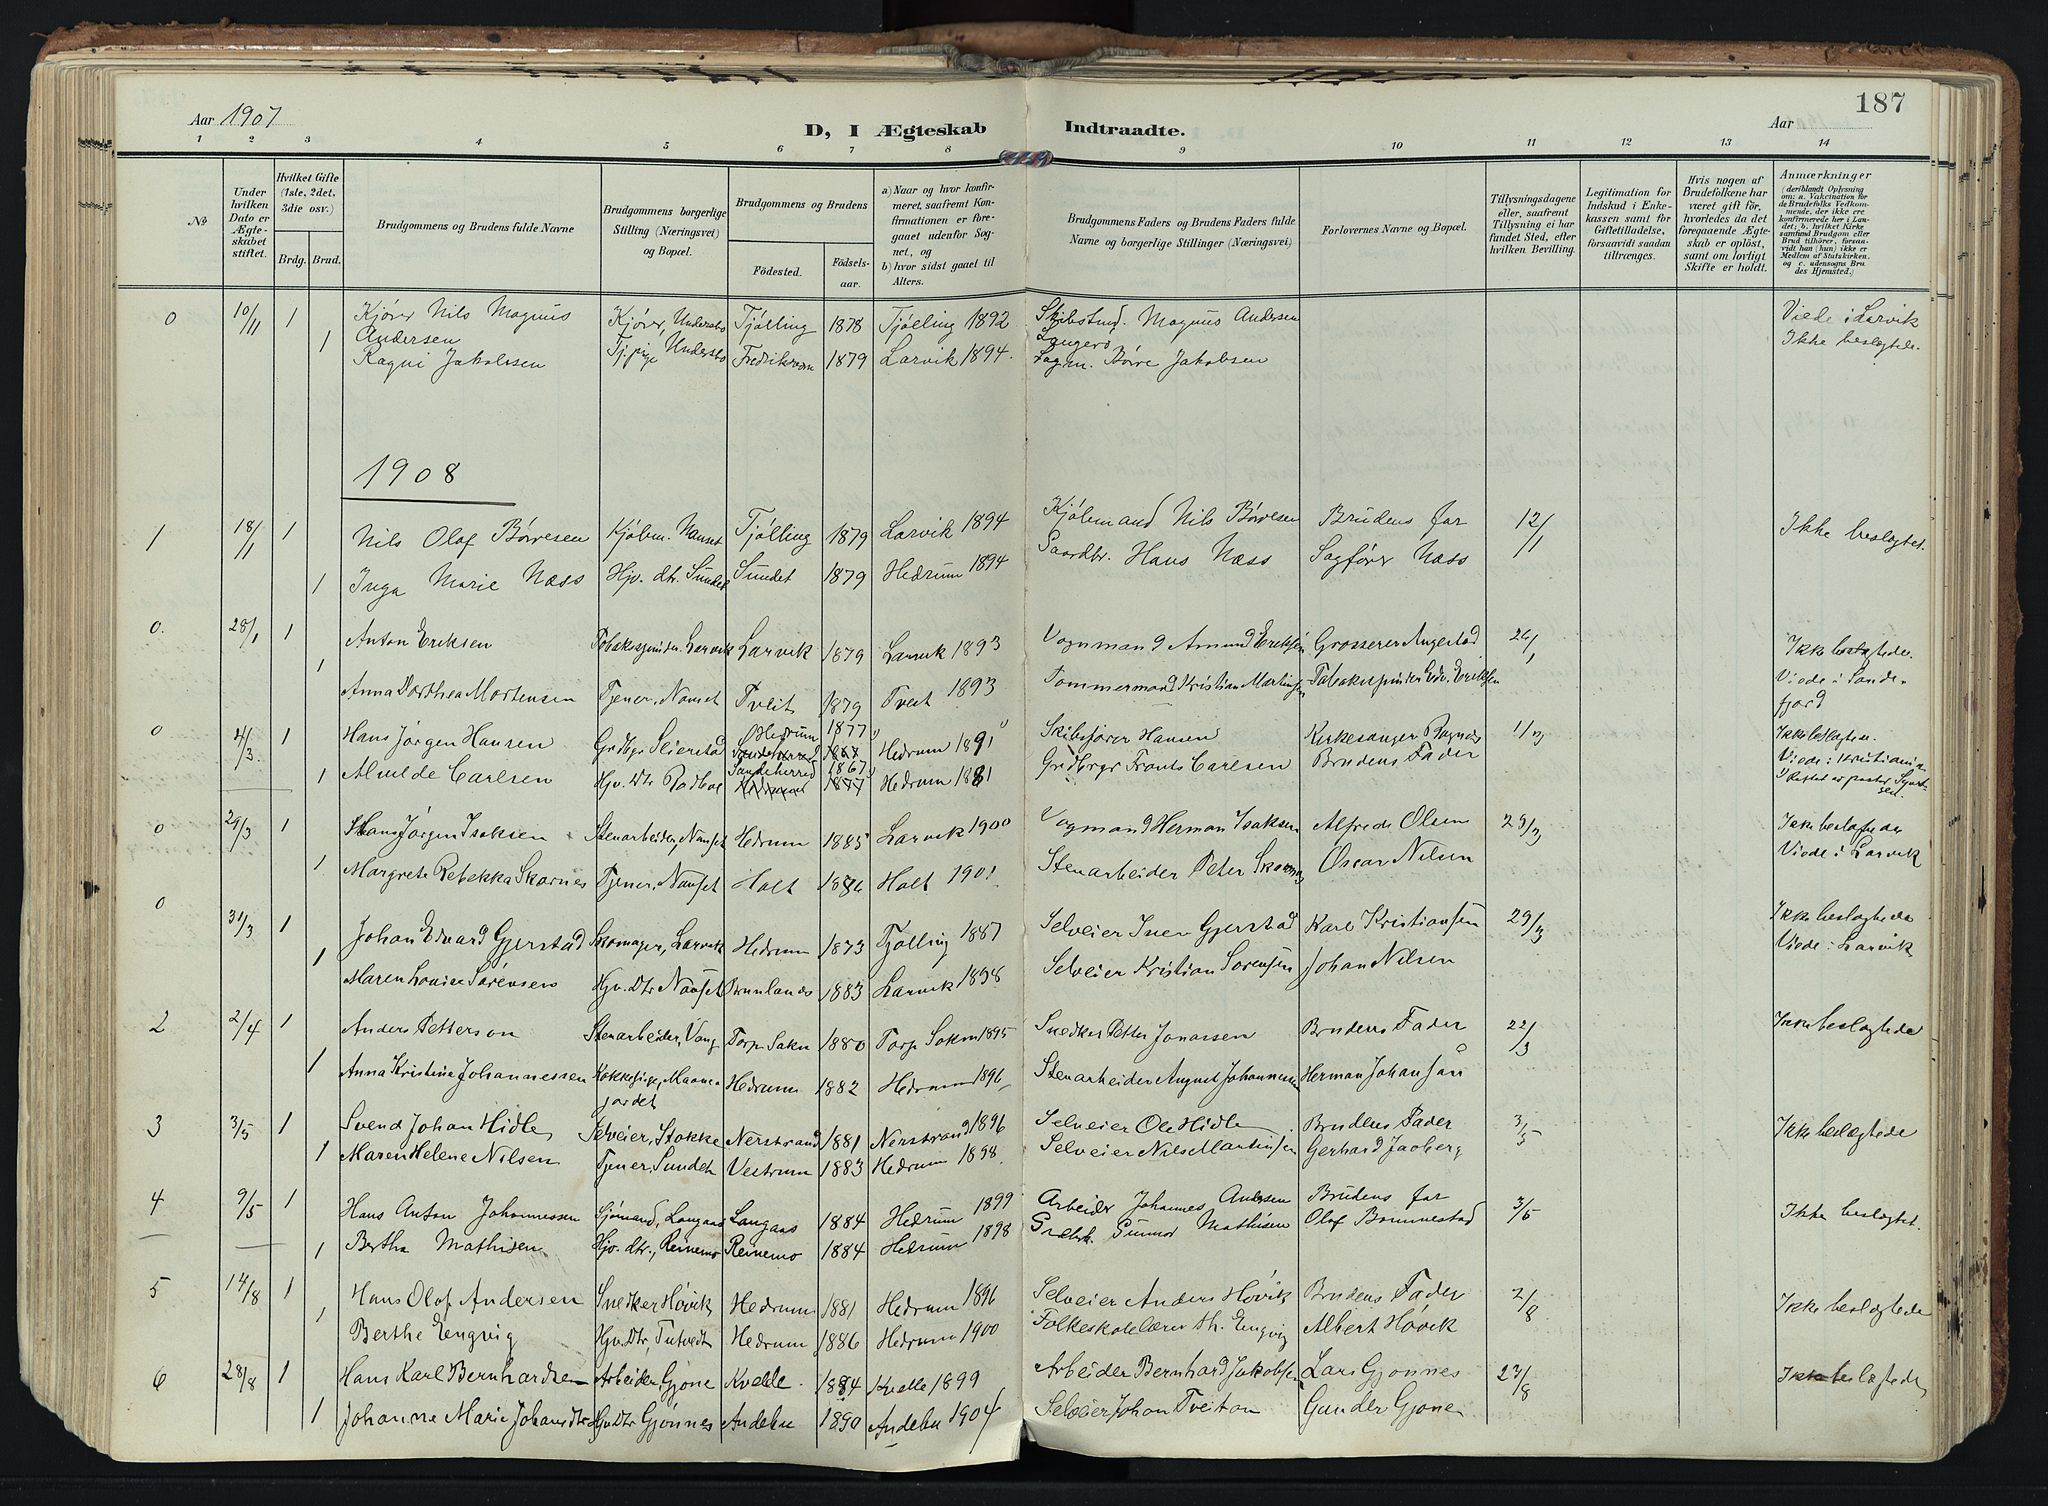 187
Aar 1907
D, I Ægteskab Indtraadte.
Aar
1 2 3 4 5 6 7 8 9 10 11 12 13 14
No
Under hvilken Dato er Ægteskabet stiftet.
Hvilket Gifte (1ste, 2det, 3die osv.)
Brdg. Brud.
Brudgommens og Brudens fulde Navne
Brudgommens borgerlige Stilling (Næringsvei) og Bopæl.
Brudgommens og Brudens
Födested. Födselsaar.
a) Naar og hvor konfirmeret, saafremt Konfirmationen er foregaaet udenfor Sognet, og
b) hvor sidst gaaet til Alters.
Brudgommens Faders og Brudens Faders fulde Navne og borgerlige Stillinger (Næringsvei)
Forlovernes Navne og Bopæl.
Tillysningsdagene eller, saafremt Tillysning ei har fundet Sted, efter hvilken Bevilling.
Legitimation for Indskud i Enkekassen samt for Giftetilladelse, forsaavidt saadan tiltrænges.
Hvis nogen af Brudefolkene har været gift før, hvorledes da det foregaaende Ægteskab er opløst, samt om lovligt Skifte er holdt.
Anmærkninger
(deriblandt Oplysning om: a. Vaccination for de Brudefolks Vedkommende, der ikke ere konfirmerede her i Landet; b. hvilket Kirkesamfund Brudgom eller Brud tilhører, forsaavidt han (hun) ikke er Medlem af Statskirken, og c. udensogns Brudes Hjemsted.)
0 10/11 1 Kjører Nils Magnus Andersen Kjører, Undersbo Tjølling 1878 Tjølling 1892 Magnus Andersen Viede i Larvik
1 Ragni Jakobsen Tj.pige Undersbo Fredriksværn 1879 Larvik 1894. Sagm. Børre Jakobsen Ikke beslægtede.
1908
1 18/1 1 Nils Olaf Børresen Kjøbm. Nanset Tjølling 1879 Larvik 1894 Kjøbmand Nils Børresen Brudens far 12/1 Ikke beslægtet.
1 Inga Marie Næss Hjv. dtr. Sundet Sundet 1879 Hedrum 1894 Gaardbr. Hans Næss Sagfører Næss
0. 28/1 1 Anton Eriksen Tobaksspinder. Larvik Larvik 1879 Larvik 1893 Vognmand Amund Eriksen Grosserer Angerstad 24/1 Ikke beslægtede.
1 Anna Dorthea Mortensen Tjener, Nanset Tveit 1879 Tveit 1893 Tømmermand Kristian Martinsen Tobaksspinder Edv. Eriksen Viede i Sandefjord
0 4/3 1 Hans Jørgen Hansen Grdbgr Seierstad Hedrum 1877 Hedrum 1891 Skibsfører Hansen Kirkesanger Bogness 1/3 Ikke beslægtede.
1 Alvilde Carlsen Hjv. Dtr Rødbøl Sandeherred 1867 Hedrum 1881 Grdbrgr Frants Carlsen Brudens Fader Viede i Kristiania
0 24/3 1 Hans Jørgen Isaksen Stenarbeider, Nanset Hedrum 1885 Larvik 1900 Vogmand Herman Isaksen Alfrede Olsen 23/3 Ikke beslægtede
1 Margrete Rebekka Skarnes Tjener, Nanset Holt 1886 Holt 1901 Stenarbeider Peter Skarnes Oscar Nilsen Viede i Larvik
0 31/3 1 Johan Edvard Gjerstad Skomager, Larvik Hedrum 1873 Tjølling 1887 Selveier Iver Gjerstad Karl Kristiansen 29/3 Ikke beslægtede
1 Maren Lovise Sørensen Hjv. Dtr Nanset Brunlanes 1883 Larvik 1898 Selveier Kristian Sørensen Johan Nilsen Viede i Larvik
2 2/4 1 Anders Petterson Stenarbeider, Vang Torp Sokn 1880 Torp Sokn 1895 Snedker Petter Jonassen Brudens Fader 22/3 Ikke beslægtede
1 Anna Kristine Johannessen Kokkepige, Maanejordet Hedrum 1882 Hedrum 1896 Stenarbeider August Johannessen Herman Johansen
3 3/5 1 Svend Johan Hidle Selveier, Stokke Nerstrand 1881 Nerstrand 1896 Selveier Ole Hidle Brudens Fader 3/5 Ikke beslægtede
1 Maren Helene Nilsen Tjener, Sundet Vestrum 1883 Hedrum 1898. Selveier Nils Martinsen Gerhard Jaaberg
4 9/5 1 Hans Anton Johannessen Sjømand, Langaas Langaas 1884 Hedrum 1899 Arbeider Johannes Andersen Brudens far 3/5 Ikke beslægtet.
1 Bertha Mathisen Hjv. dtr., Reinemo Reinemo 1884 Hedrum 1898 Grdbrk. Gunnar Mathisen Olaf Bommestad
5 14/8 1 Hans Olaf Andersen Snedker Høvik Hedrum 1881 Hedrum 1896 Selveier Anders Høvik Brudens Fader 2/8 Ikke beslægtede
1 Berthe Engvig Hjv. Dtr, Tutvedt Hedrum 1886 Hedrum 1900 Folkeskolelærer Th. Engvig Albert Høvik
6 28/8 1 Hans Karl Bernhardsen Arbeider Gjone Kvelle 1884 Kvelle 1899 Arbeider Bernhard Jakobsen Lars Gjønnes 23/8 Ikke beslægtede
1 Johanne Marie Johansdtr Hjv dtr Gjønnes Andebu 1890 Andebu 1904 Selveier Johan Treiton Gunder Gjone